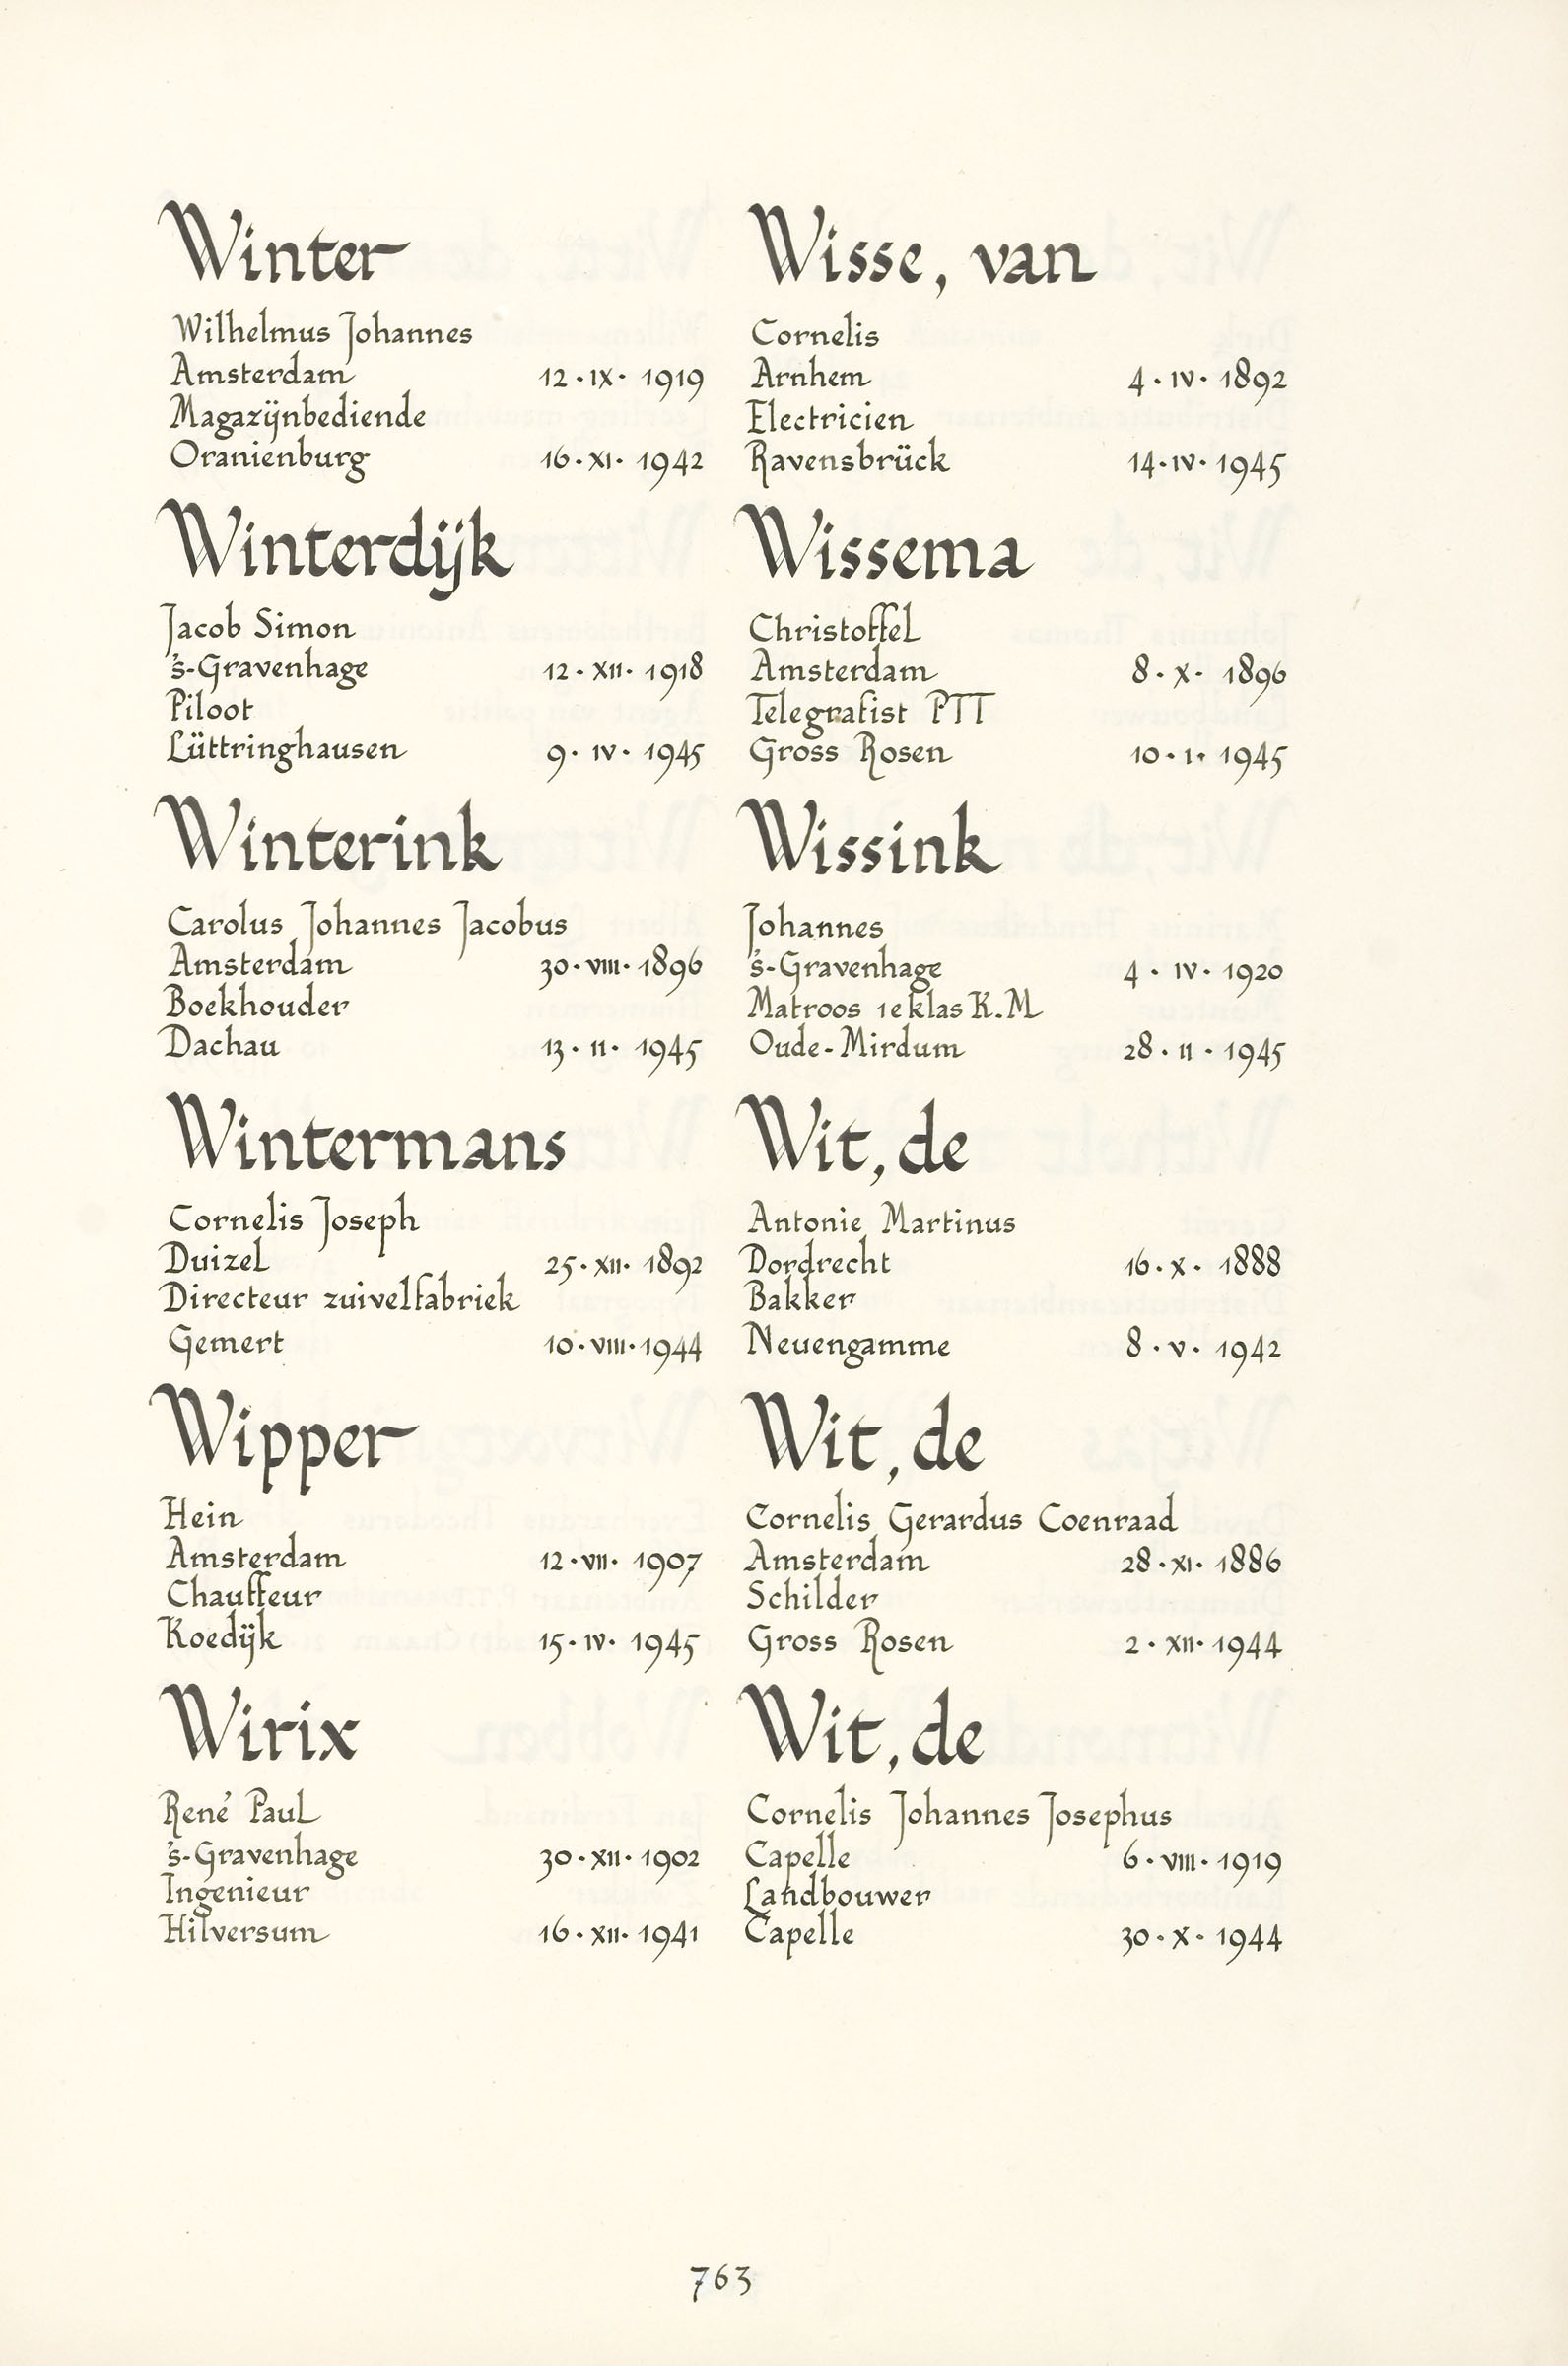 Winter
Wilhelmus Johannes
Amsterdam 12·IX·1919
Magazijnbediende
Oranienburg 16·XI·1942
Winterdijk
Jacob Simon
's-Gravenhage 12·XII·1918
Piloot
Lüttringhausen 9·IV·1945
Winterink
Carolus Johannes Jacobus
Amsterdam 30·VIII·1896
Boekhouder
Dachau 13·II·1945
Wintermans
Cornelis Joseph
Duizel 25·XII·1892
Directeur zuivelfabriek
Gemert 10·VIII·1944
Wipper
Hein
Amsterdam 12·VII·1907
Chauffeur
Koedijk 15·IV·1945
Wirix
René Paul
's-Gravenhage 30·XII·1902
Ingenieur
Hilversum 16·XII·1941
Wisse, van
Cornelis
Arnhem 4·IV·1892
Electricien
Ravensbrück 14·IV·1945
Wissema
Christoffel
Amsterdam 8·X·1896
Telegrafist PTT
Gross Rosen 10·I·1945
Wissink
Johannes
's-Gravenhage 4·IV·1920
Matroos 1e klas K.M
Oude-Mirdum 28·II·1945
Wit, de
Antonie Martinus
Dordrecht 16·X·1888
Bakker
Neuengamme 8·V·1942
Wit, de
Cornelis Gerardus Coenraad
Amsterdam 28·XI·1886
Schilder
Gross Rosen 2·XII·1944
Wit, de
Cornelis Johannes Josephus
Capelle 6·VIII·1919
Landbouwer
Capelle 30·X·1944
763